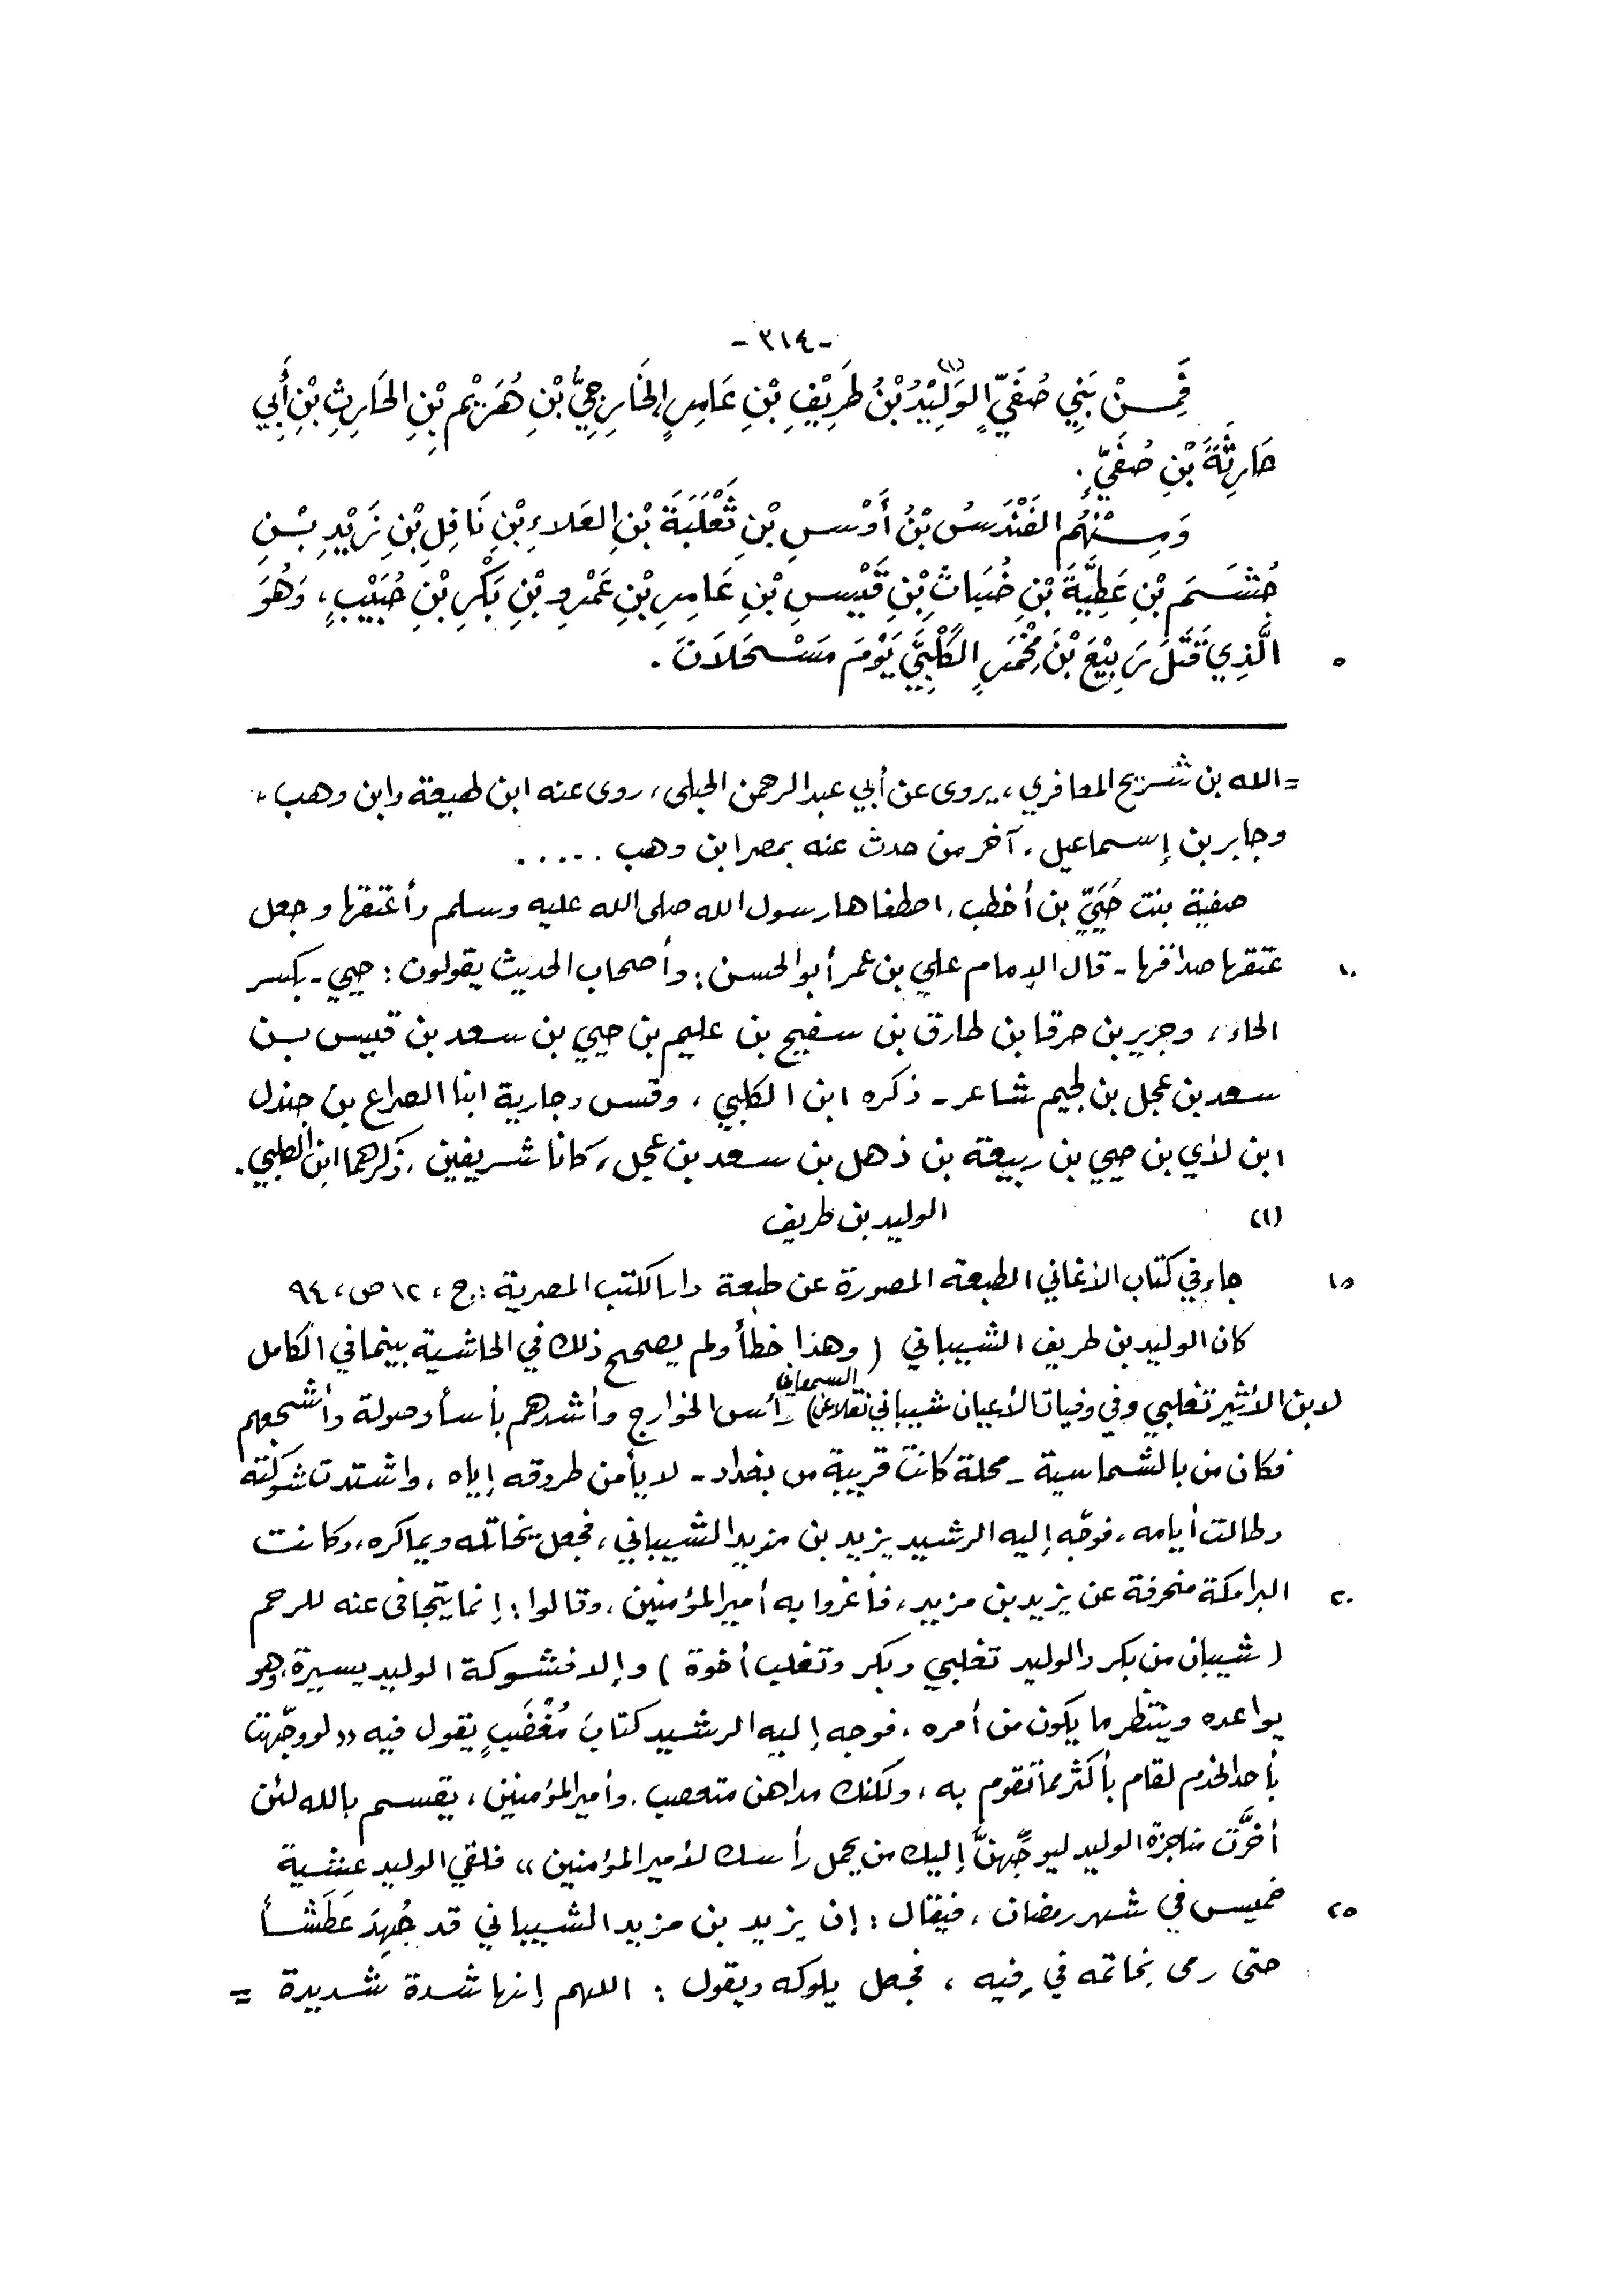 -٣١٤-
فَمِنْ بَنِي صُفَيٍّ الوَلِيْدُ(١) بْنُ طَرِيْفِ بْنِ عَامِرٍ الخَارِجِيُّ بْنِ هُزَيْمِ بْنِ الحَارِثِ بْنِ أَبِي
حَارِثَةَ بْنِ صُفَيٍّ.
وَمِنْهُم الفَنْدَسُ بْنُ أَوْسِ بْنِ ثَعْلَبَةَ بْنِ العَلاءِ بْنِ نَافِلِ بْنِ زَيْدِ بْنِ
جُشَمَ بْنِ عَطِيَّةَ بْنِ خُيَاثِ بْنِ قَيْسِ بْنِ عَامِرِ بْنِ عَمْرِو بْنِ بَكْرِ بْنِ حُبَيْبٍ، وَهُوَ
٥ الَّذِي قَتَلَ رَبِيْعَ بْنَ مِخْمَرٍ الكَلْبِيَّ يَوْمَ مَسْحَلَانَ.
= الله بن شريح المعافري، يروى عن أبي عبد الرحمن الحبلى، روى عنه ابن لهيعة وابن وهب،
وجابر بن إسماعيل، آخر من حدث عنه بمصر ابن وهب .....
صفية بنت حُيَيّ بن أخطب، اصطفاها رسول الله صلى الله عليه وسلم وأعتقها وجعل
١٠ عتقها صداقها - قال الإمام علي بن عمر أبو الحسن: وأصحاب الحديث يقولون: حيي - بكسر
الحاء، وجرير بن حرقا بن طارق بن سفيح بن عليم بن حيي بن سعد بن قيس بن
سعد بن عجل بن لجيم شاعر - ذكره ابن الكلبي، وقسس وجارية ابنا الصراع بن جندل
ابن لأي بن حيي بن ربيعة بن ذهل بن سعد بن عجل، كانا شريفين، ذكرهما ابن الكلبي.
(١) الوليد بن طريف
١٥ جاء في كتاب الأغاني الطبعة المصورة عن طبعة دار الكتب المصرية: ج، ١٢ ص، ٩٤
كان الوليد بن طريف الشيباني (وهذا خطأ ولم يصحح ذلك في الحاشية بينما في الكامل
لابن الأثير تغلبي وفي وفيات الأعيان شيباني نقلا عن السمعاني) رأس الخوارج وأشدهم بأسأ وصولة وأشجعهم
فكان من بالشماسية - محلة كانت قريبة من بغداد - لا يأمن طروقه إياه، واشتدت شوكته
وطالت أيامه، فوجّه إليه الرشيد يزيد بن مزيد الشيباني، فجعل يخاتله ويماكره، وكانت
٢٠ البرامكة منحرفة عن يزيد بن مزيد، فأغروا به أمير المؤمنين، وقالوا: إنما يتجافى عنه للرحم
(شيبان من بكر والوليد تغلبي وبكر وتغلب أخوة) وإلا فشوكة الوليد يسيرة، وهو
يواعده وينتظر ما يكون من أمره، فوجه إليه الرشيد كتابَ مُغْضَبٍ يقول فيه «لو وجّهت
بأحد الخدم لقام بأكثر مما تقوم به، ولكنك مداهن متعصب، وأمير المؤمنين، يقسم بالله لئن
أخّرْتَ مناجزة الوليد ليوجّهنَّ إليك من يحمل رأسك لأمير المؤمنين» فلقي الوليد عشية
٢٥ خميس في شهر رمضان، فيقال: إن يزيد بن مزيد الشيباني قد جُهِدَ عَطَشاً
حتى رمى بخاتمه في فِيه، فجعل يلوكه ويقول: اللهم إنها شدة شديدة =